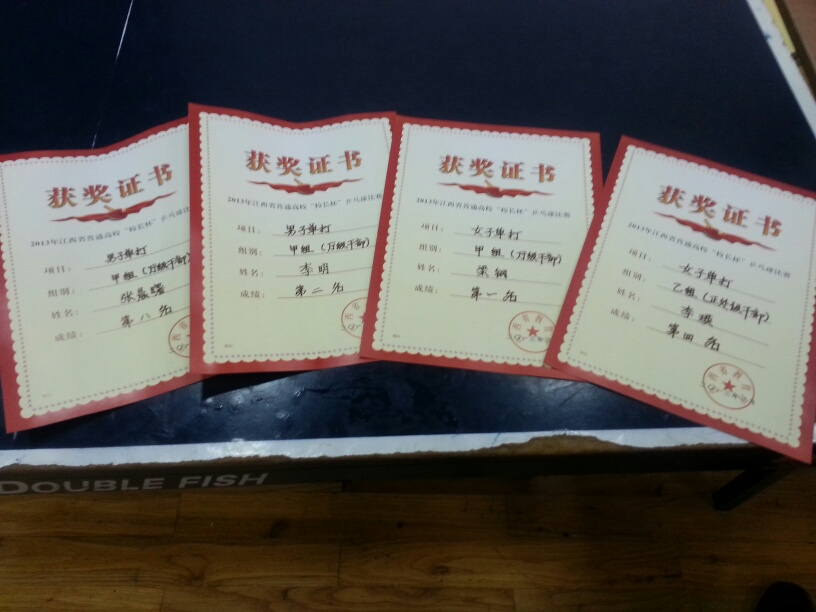 获奖证书
2013年江西省普通高校“校长杯”乒乓球比赛
项目：男子单打
组别：甲组（厅级干部）
姓名：张晨曙
成绩：第八名
获奖证书
2013年江西省普通高校“校长杯”乒乓球比赛
项目：男子单打
组别：甲组（厅级干部）
姓名：李明
成绩：第二名
获奖证书
2013年江西省普通高校“校长杯”乒乓球比赛
项目：女子单打
组别：甲组（厅级干部）
姓名：梁钢
成绩：第一名
获奖证书
2013年江西省普通高校“校长杯”乒乓球比赛
项目：女子单打
组别：乙组（正处级干部）
姓名：李瑛
成绩：第四名
DOUBLE FISH